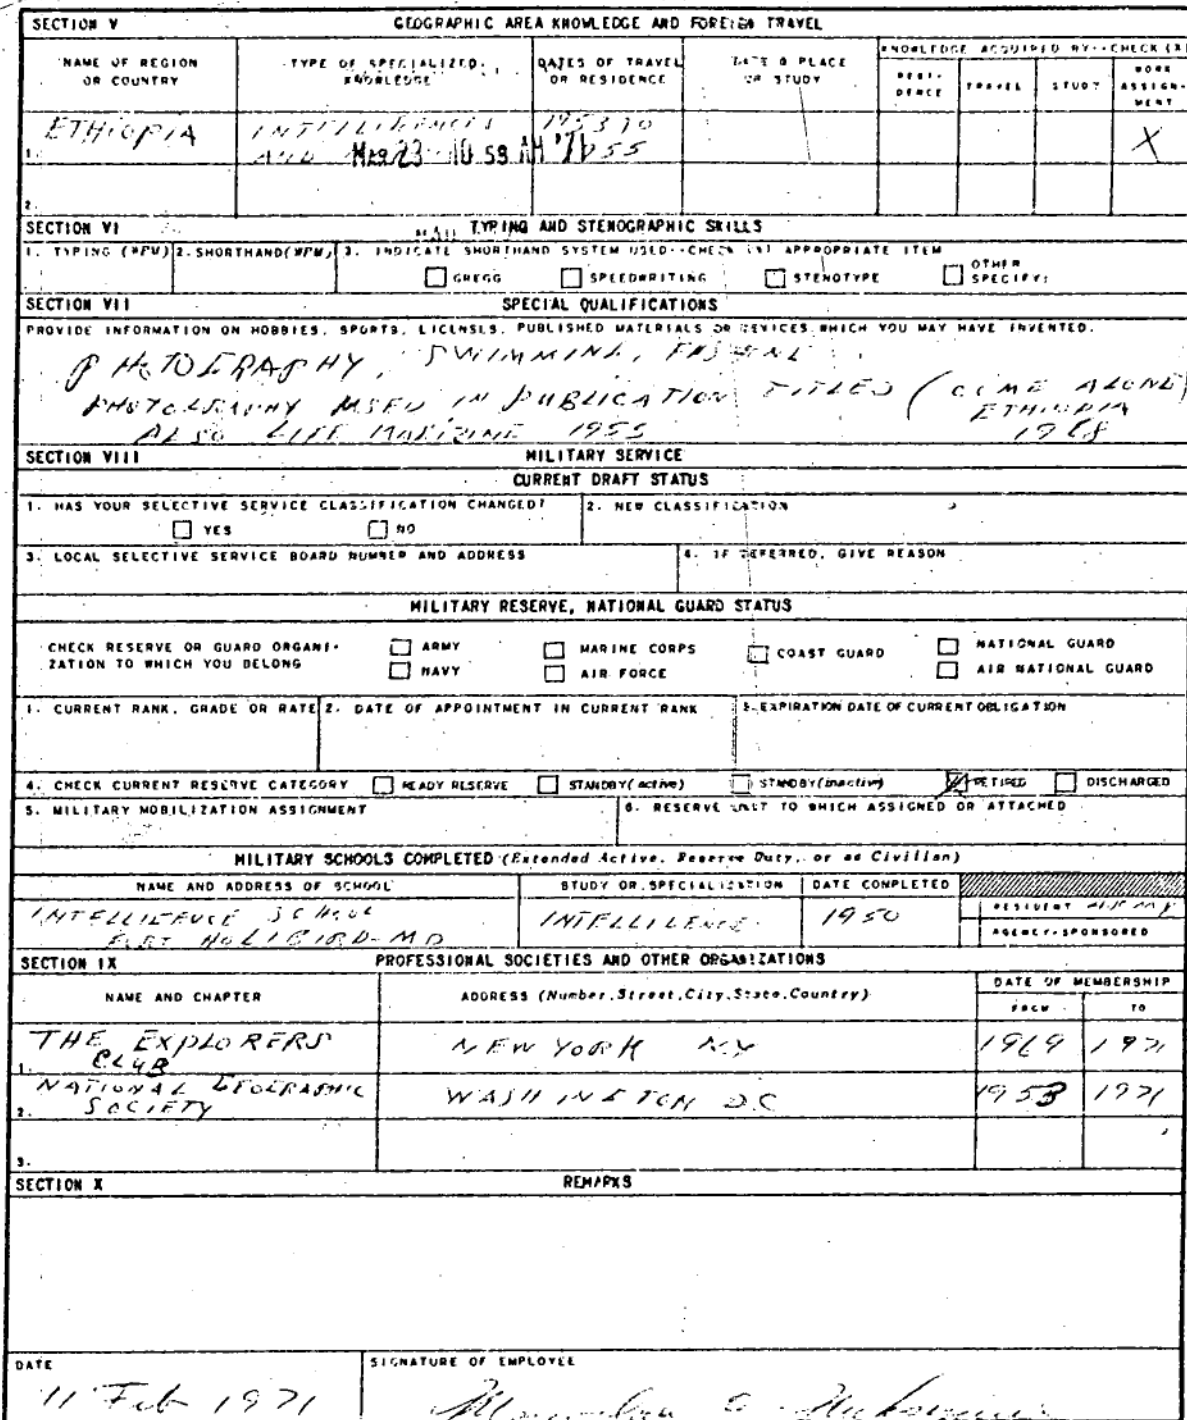 SECTION V GEOGRAPHIC AREA KNOWLEDGE AND FOREIGN TRAVEL
NAME OF REGION OR COUNTRY
TYPE OF SPECIALIZED KNOWLEDGE
DATES OF TRAVEL OR RESIDENCE
DATE & PLACE OF STUDY
KNOWLEDGE ACQUIRED BY--CHECK (X)
RESI-DENCE
TRAVEL
STUDY
WORK ASSIGN-MENT
1. ETHIOPIA
1953 TO
MAR 23 10 59 AM '71
55
X
2.
SECTION VI TYPING AND STENOGRAPHIC SKILLS
1. TYPING (WPM) 2. SHORTHAND (WPM) 3. INDICATE SHORTHAND SYSTEM USED--CHECK (X) APPROPRIATE ITEM
GREGG SPEEDWRITING STENOTYPE OTHER SPECIFY:
SECTION VII SPECIAL QUALIFICATIONS
PROVIDE INFORMATION ON HOBBIES, SPORTS, LICENSES, PUBLISHED MATERIALS OR DEVICES WHICH YOU MAY HAVE INVENTED.
PHOTOGRAPHY, SWIMMING,
PHOTOGRAPHY USED IN PUBLICATION TITLED (COME ALONG)
ETHIOPIA
ALSO LIFE MAGIZINE 1955 1968
SECTION VIII MILITARY SERVICE
CURRENT DRAFT STATUS
1. HAS YOUR SELECTIVE SERVICE CLASSIFICATION CHANGED? 2. NEW CLASSIFICATION
YES NO
3. LOCAL SELECTIVE SERVICE BOARD NUMBER AND ADDRESS 4. IF DEFERRED, GIVE REASON
MILITARY RESERVE, NATIONAL GUARD STATUS
CHECK RESERVE OR GUARD ORGANI-ZATION TO WHICH YOU BELONG
ARMY MARINE CORPS COAST GUARD NATIONAL GUARD
NAVY AIR FORCE AIR NATIONAL GUARD
1. CURRENT RANK, GRADE OR RATE 2. DATE OF APPOINTMENT IN CURRENT RANK 3. EXPIRATION DATE OF CURRENT OBLIGATION
4. CHECK CURRENT RESERVE CATEGORY READY RESERVE STANDBY(active) STANDBY(inactive) RETIRED DISCHARGED
5. MILITARY MOBILIZATION ASSIGNMENT 6. RESERVE UNIT TO WHICH ASSIGNED OR ATTACHED
MILITARY SCHOOLS COMPLETED (Extended Active, Reserve Duty, or as Civilian)
NAME AND ADDRESS OF SCHOOL STUDY OR SPECIALIZATION DATE COMPLETED
INTELLIGENCE SCHOOL INTELLIGENCE 1950 RESIDENT
FORT HOLIBIRD-MD AGENCY-SPONSORED
SECTION IX PROFESSIONAL SOCIETIES AND OTHER ORGANIZATIONS
NAME AND CHAPTER ADDRESS (Number, Street, City, State, Country) DATE OF MEMBERSHIP
FROM TO
THE EXPLORERS NEW YORK NY 1969 1971
1. CLUB
NATIONAL GEOGRAPHIC WASHINGTON D.C 1953 1971
2. SOCIETY
3.
SECTION X REMARKS
DATE SIGNATURE OF EMPLOYEE
11 Feb 1971